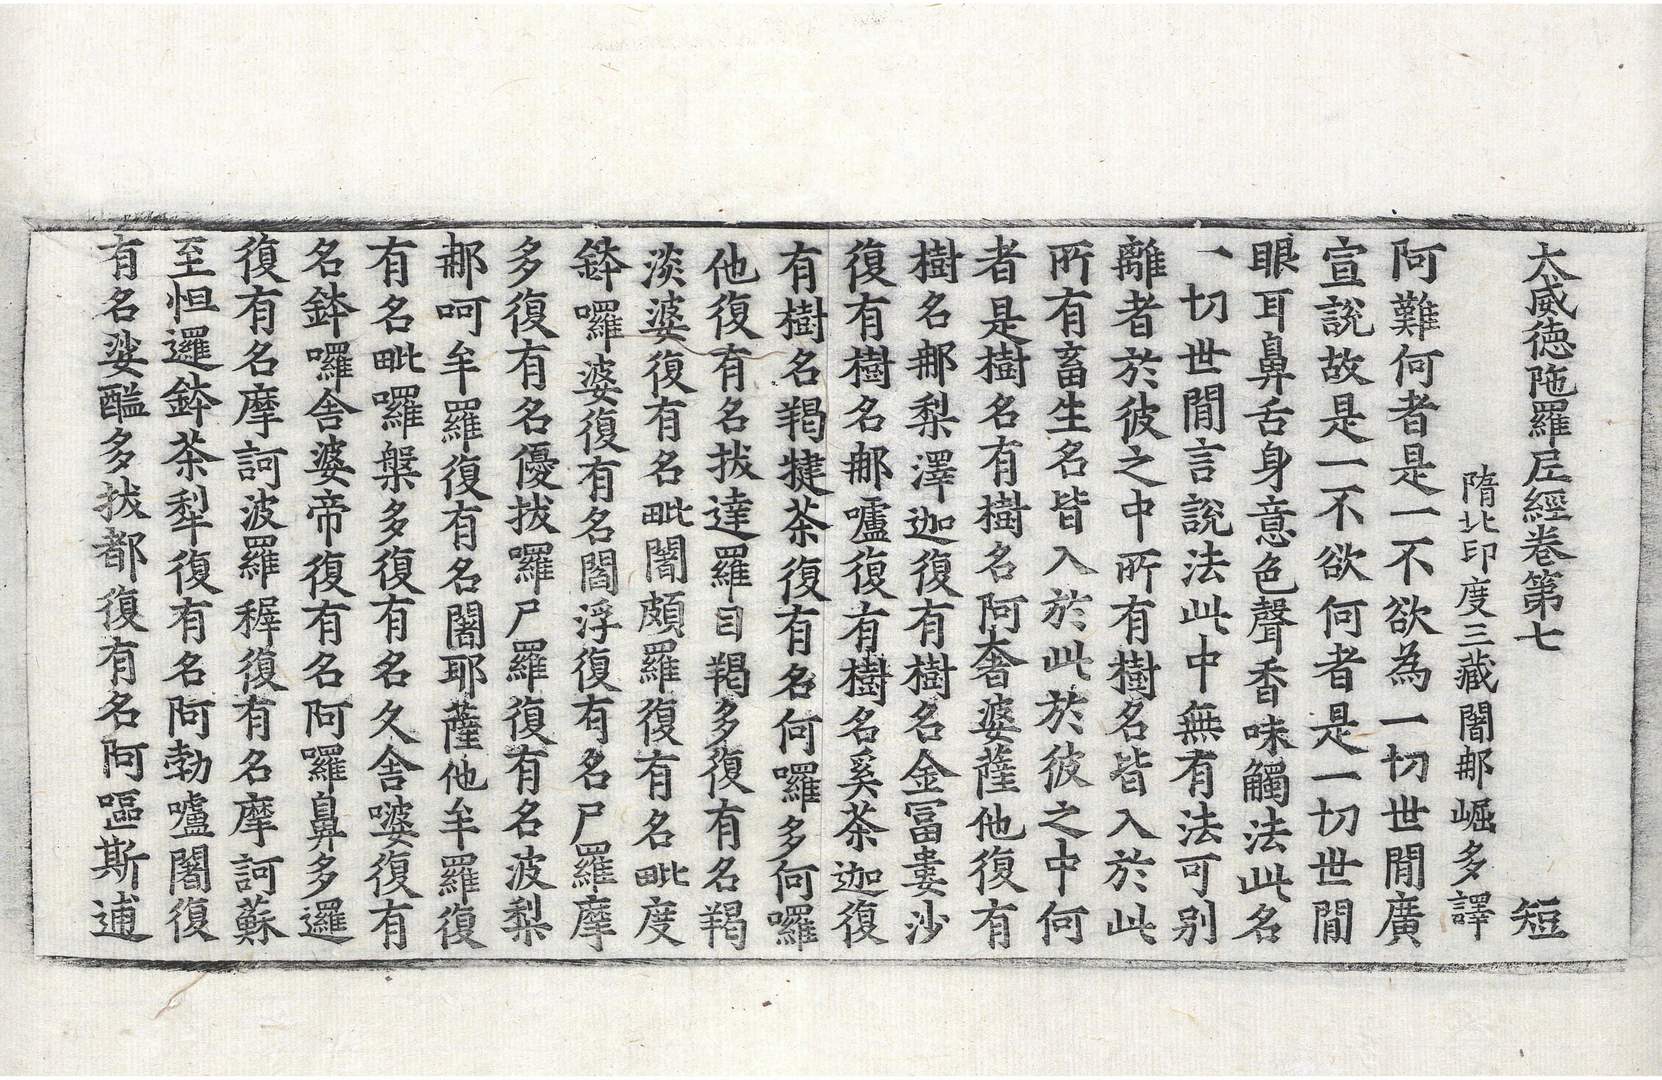 大威德陁羅尼經卷第七　短
隋北印度三藏闍那崛多譯
阿難何者是一不欲為一切世閒廣
宣說故是一不欲何者是一切世閒
眼耳鼻舌身意色聲香味觸法此名
一切世閒言說法此中無有法可别
離者於彼之中所有樹名皆入於此
所有畜生名皆入於此於彼之中何
者是樹名有樹名阿奢婆薩他復有
樹名那梨澤迦復有樹名金冨婁沙
復有樹名那嚧復有樹名奚荼迦復
有樹名羯揵荼復有名何囉多何囉
他復有名拔達羅目羯多復有名羯
淡婆復有名毗闍頗羅復有名毗度
鉢囉婆復有名閻浮復有名尸羅摩
多復有名優拔囉尸羅復有名波梨
那呵牟羅復有名闍耶薩他牟羅復
有名毗囉槃多復有名久舍婆復有
名鉢囉舍婆帝復有名阿囉鼻多邏
復有名摩訶波羅稺復有名摩訶蘇
至怛邏鉢荼犁復有名阿勃嚧闍復
有名娑醯多拔都復有名阿嘔斯逋